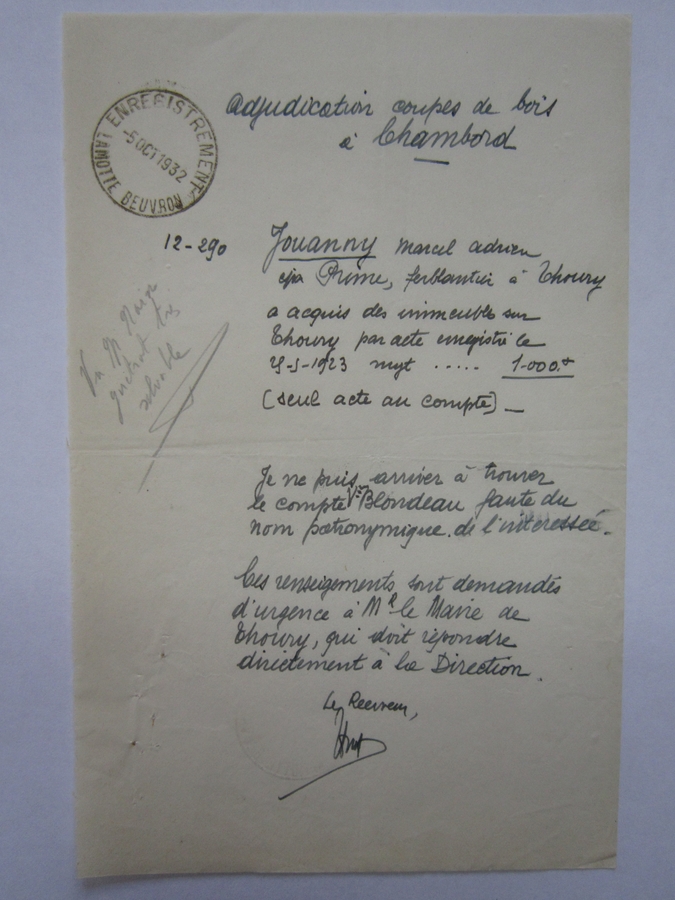 Adjudication coupes de bois
à Chambord
ENREGISTREMENT
-5 OCT 1932
LAMOTTE BEUVRON
12-290
Jouanny Marcel Adrien
épx Prime, ferblantier à Thoury
a acquis des immeubles sur
Thoury par acte enregistré le
1923 myt ..... 1.000.
(seul acte au compte) _
Je ne puis arriver à trouver
le compte Vve Blondeau faute du
nom patronymique de l'intéressée.
Ces renseigements sont demandés
d'urgence à Mr le Maire de
Thoury, qui doit répondre
directement à la Direction.
Le Receveur,
Vu
solvable